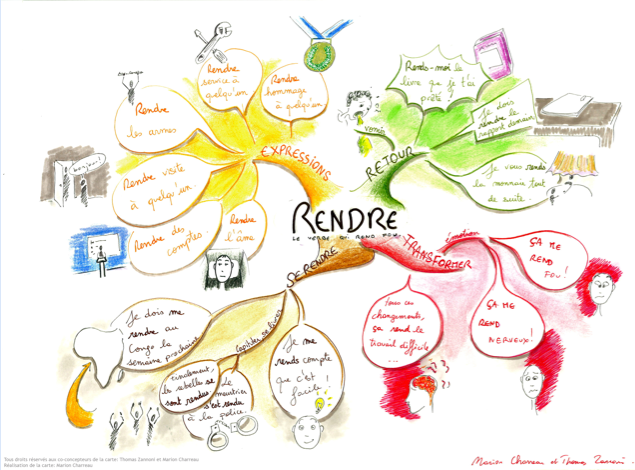 RENDRE
LE VERBE QUI REND FOU
EXPRESSIONS
Rendre
les armes
Rendre
service à
quelqu'un
Rendre
hommage
à quelqu'un
Rendre visite
à quelqu'un
bonjour!
Rendre des
comptes
Rendre
l'âme
RETOUR
Rends-moi le
livre que je t'ai
prêté!
vomir
Je dois
rendre le
rapport demain
Je vous rends
la monnaie tout
de suite.
TRANSFORMER
Emotion
ÇA ME
REND
FOU!
ÇA ME
REND
NERVEUX!
tous ces
changements,
ça rend le
travail difficile
...
SE RENDRE
Je dois me
rendre au
Congo la
semaine prochaine
capituler, se livrer
Finalement,
les rebelles se
sont rendus
le
meurtrier
s'est rendu
à la police.
Je me
rends compte
que c'est
facile!
Tous droits réservés aux co-concepteurs de la carte: Thomas Zannoni et Marion Charreau
Réalisation de la carte: Marion Charreau
Marion Charreau et Thomas Zannoni.